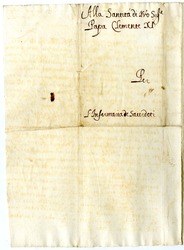 Alla Santità di Nro Sigre
Papa Clemente XI
Per
L'Infermeria de Sacerdoti